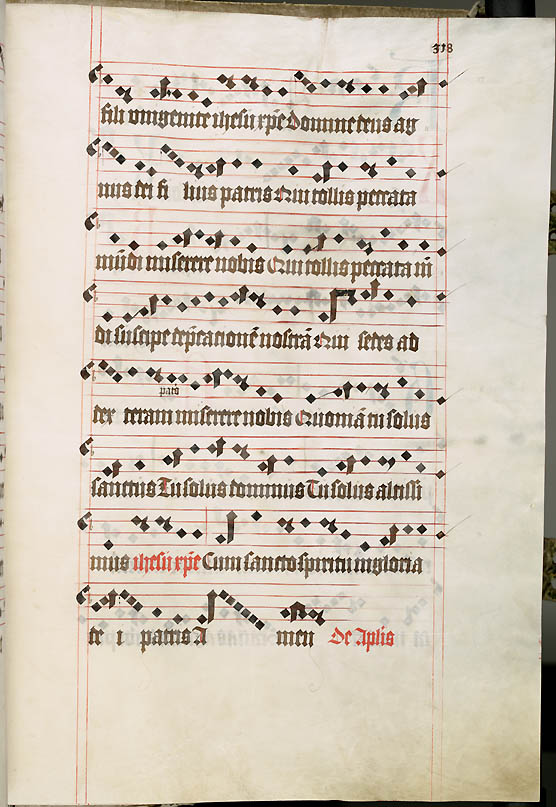 318
fili vnigenite ihesu xp̄e Domine deus ag
nus dei fi lius patris Qui tollis peccata
mūdi miserere nobis Qui tollis peccata mū
di suscipe dep̄cationē nostrā Qui sedes ad
dex teram miserere nobis Quoniā tu solus
patris
sanctus Tu solus dominus Tu solus altissi
mus ihesu xp̄e Cum sancto spiritu in gloria
de i patris A men De Aplis